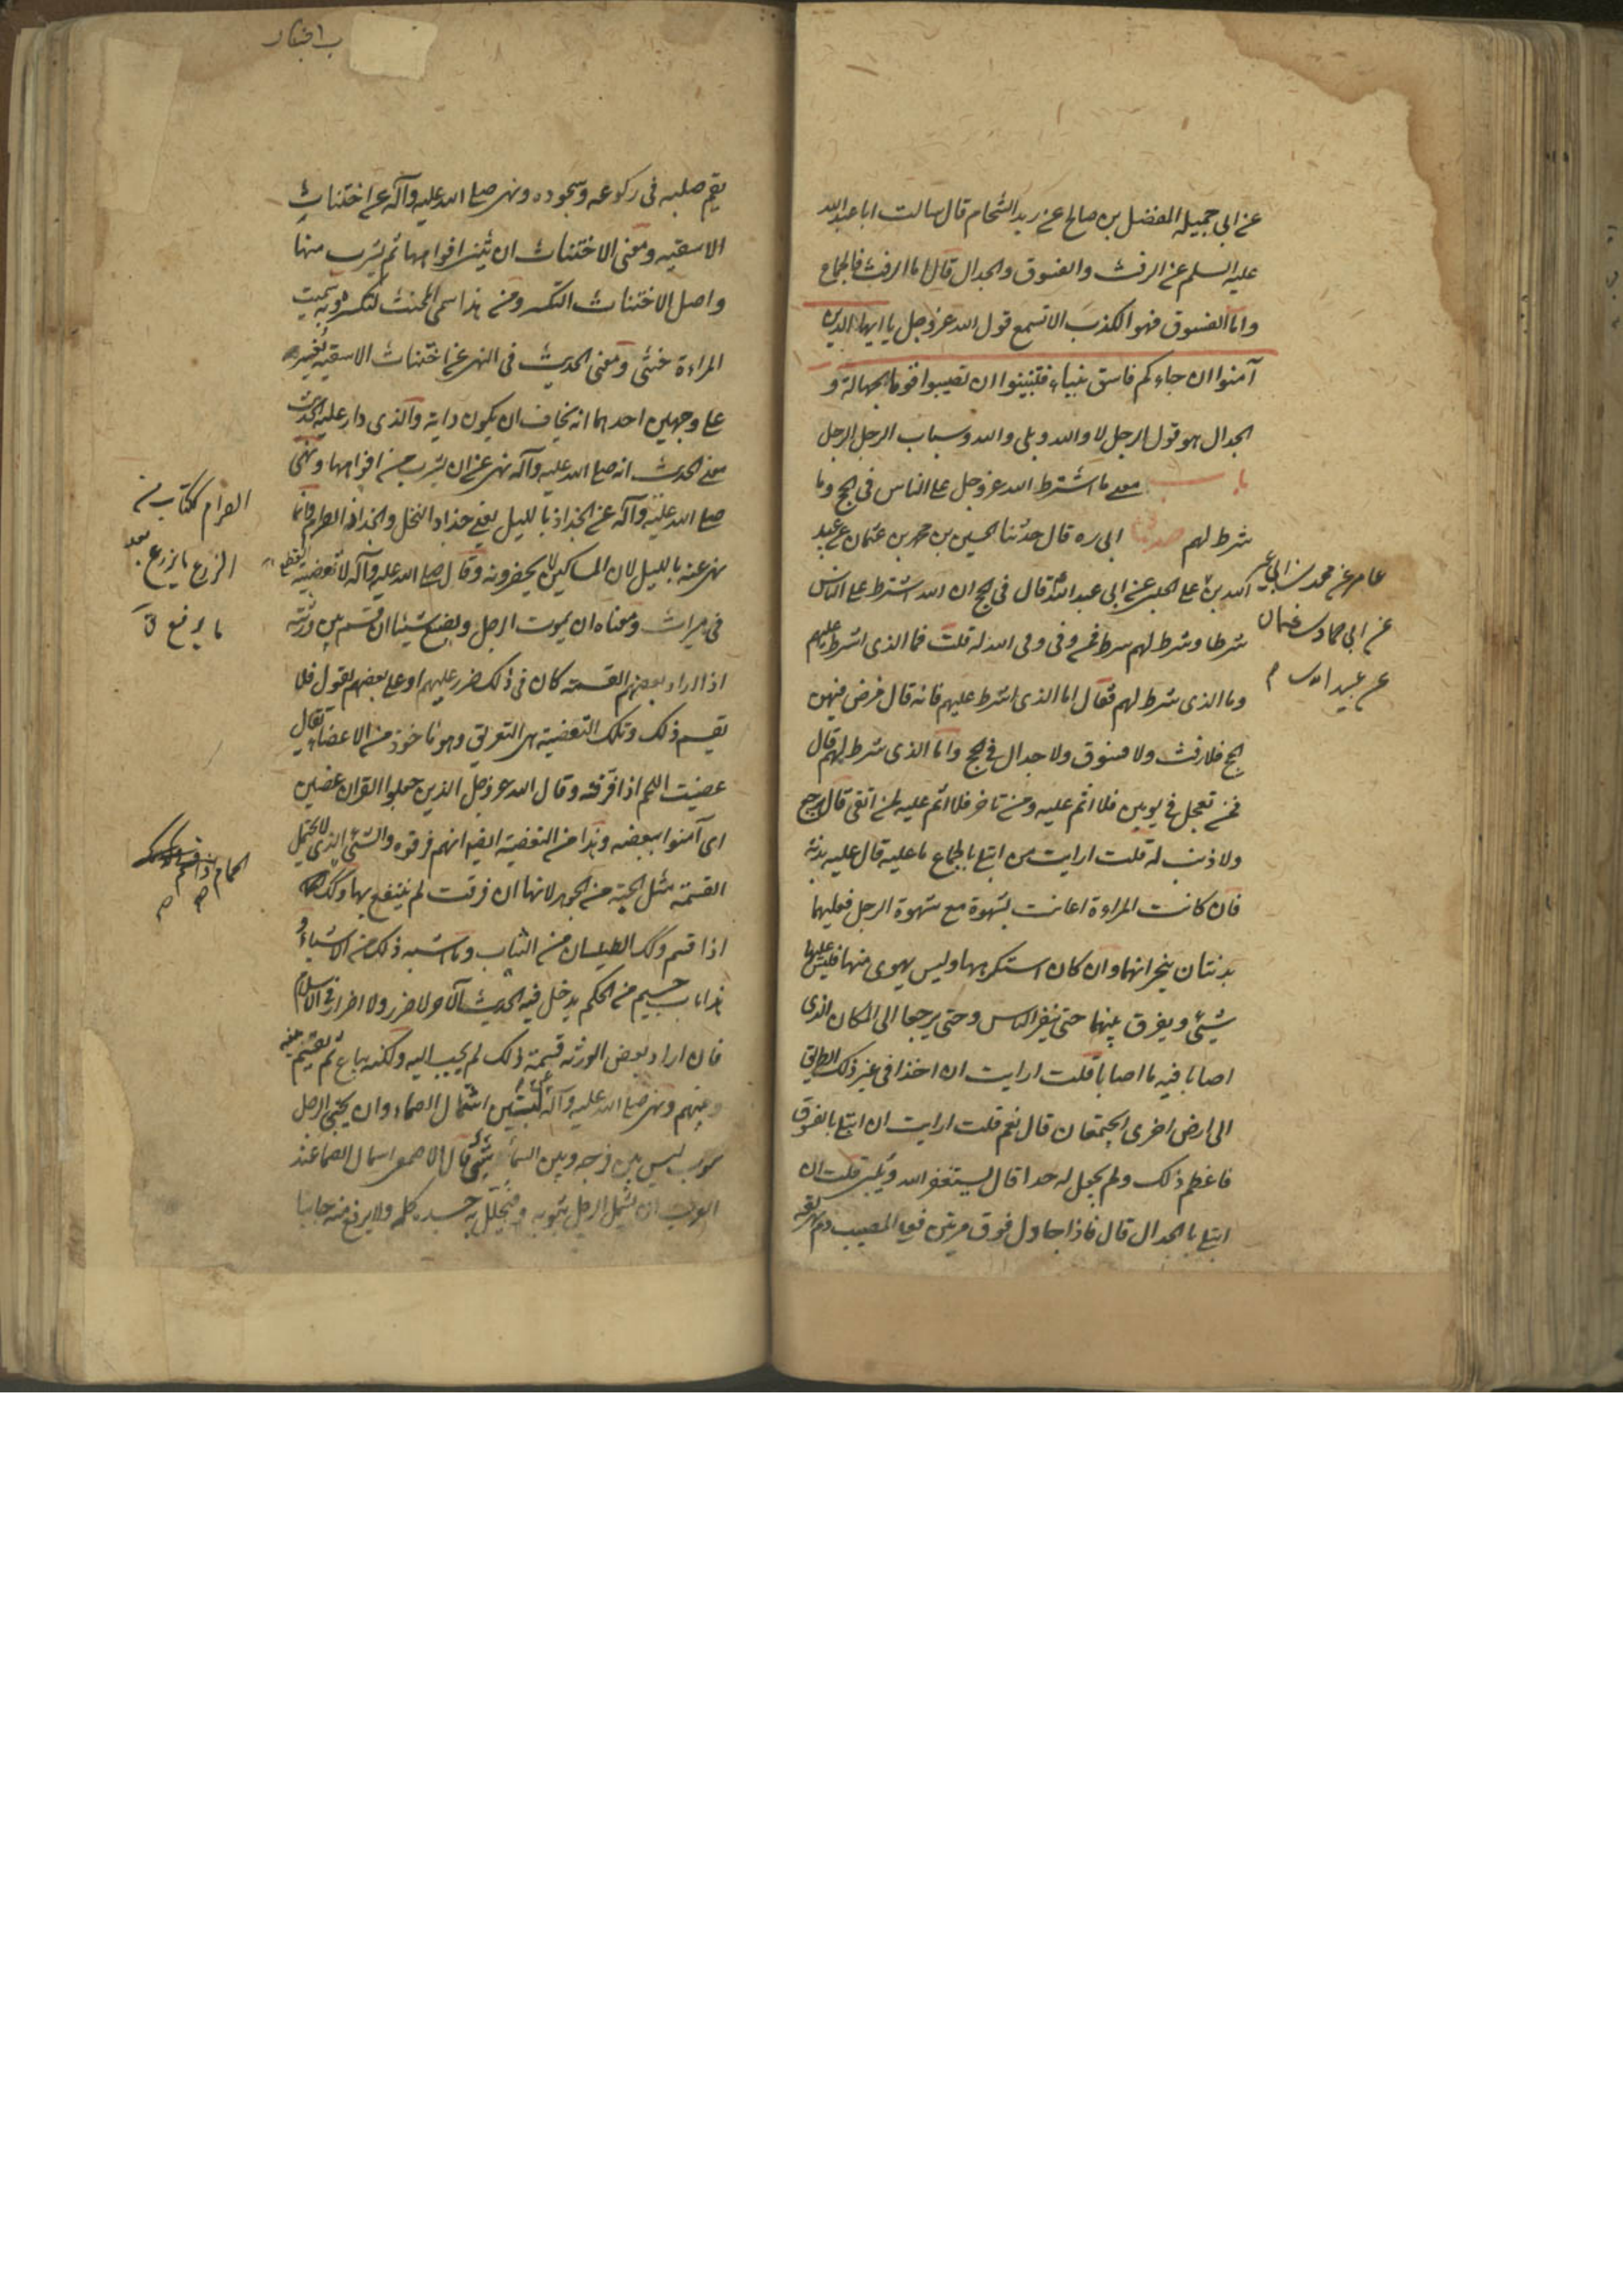 عن ابي جميله المفضل بن صالح عن زيد الشحام قال سالت ابا عبد الله
عليه السلم عن الرفث والفسوق والجدال قال اما الرفث فالجماع
واما الفسوق فهو الكذب الا تسمع قول الله عز وجل يا ايها الذين
آمنوا ان جاءكم فاسق بنباء فتبينوا ان تصيبوا قوما بجهالة و
الجدال هو قول الرجل لا والله وبلى والله وسباب الرجل الرجل
باب معنى ما اشترط الله عز وجل على الناس في الحج وما
شرط لهم ابى ره قال حدثنا الحسين بن محمد بن عثمان عن عبد
عامر عن محمد بن ابي عمير
الله بن على الحلبى عن ابى عبد الله قال فى الحج ان الله اشترط على الناس
عن ابي حماد بن عثمان
شرطا وشرط لهم شرطا فمن وفى وفى الله له قلت فما الذى اشرط عليهم
عن عبيد الله
وما الذى شرط لهم فقال اما الذى اشرط عليهم فانه قال فرض فيهن
الحج فلا رفث ولا فسوق ولا جدال في الحج واما الذى شرط لهم قال
فمن تعجل في يومين فلا اثم عليه ومن تاخر فلا اثم عليه لمن اتقى قال يرجع
ولا ذنب له قلت ارايت من ابتلى بالجماع ما عليه قال عليه بدنة
فان كانت المراءة اعانت بشهوة مع شهوة الرجل فعليهما
بدنتان ينحرانهما وان كان استكرهها وليس يهوى منها فليس عليها
شيئ ويفرق بينهما حتى ينفر الناس وحتى يرجعا الى المكان الذى
اصابا فيه ما اصابا قلت ارايت ان اخذا في غير ذلك الطريق
الى ارض اخرى ايجتمعان قال نعم قلت ارايت ان ابتلى بالفسوق
فاعظم ذلك ولم يجعل له حدا قال يستغفر الله ويلبى قلت ان
ابتلى بالجدال قال فاذا جادل فوق مرتين فعلى المصيب دم يهريقه
يقم صلبه فى ركوعه وسجوده ونهى صلى الله عليه وآله عن اختناث
الاسقيه ومعنى الاختناث ان يثنى افواهها ثم يشرب منها
واصل الاختناث التكسر ومن هذا سمى المخنث لتكسره وبه سميت
المراءة خنثى ومعنى الحديث فى النهى عن اختناث الاسقيه يفسر
على وجهين احدهما انه يخاف ان يكون دابة والذى دار عليه الحديث
معنى الحديث انه صلى الله عليه وآله نهى عن ان يشرب من افواهها ونهى
صلى الله عليه وآله عن الجذاذ بالليل يعنى جذاذ النخل والجذاذ الصرام فانما
الصرام ككتاب
نهى عنه بالليل لان المساكين لا يحضرونه وقال صلى الله عليه وآله لا تعضية
الزرع ما يزرع
فى ميراث ومعناه ان يموت الرجل ويضع شيئا ان قسم بين ورثته
ما يرفع ق
اذا اراد بعضهم القسمة كان فى ذلك ضرر عليهم او على بعضهم يقول فلا
يقسم ذلك وتلك التعضية هى التفريق وهو ماخوذ من الاعضاء يقال
عضيت اللحم اذا فرقته وقال الله عز وجل الذين جعلوا القران عضين
اى آمنوا ببعضه وهذا من التعضية ايضا انهم فرقوه والشئ الذى لا يحتمل
القسمة مثل الحبة من الجوهر لانها ان فرقت لم ينتفع بها وكك
الحمام
اذا قسم وكك الطيلسان من الثياب وما اشبه ذلك من الاشياء و
هذا باب جسيم من الحكم يدخل فيه الحديث الآخر لا ضرر ولا اضرار في الاسلام
فان اراد بعض الورثه قسمة ذلك لم يجب اليه ولكنه يباع ثم يقسم ثمنه
بينهم ونهى صلى الله عليه وآله عن لبستين اشتمال الصماء وان يحتبى الرجل
بثوب ليس بين فرجه وبين السماء شئ قال الاصمعى اشتمال الصما عند
العرب ان يشمل الرجل بثوبه فيتجلل به جسده كله ولا يرفع منه جانبا